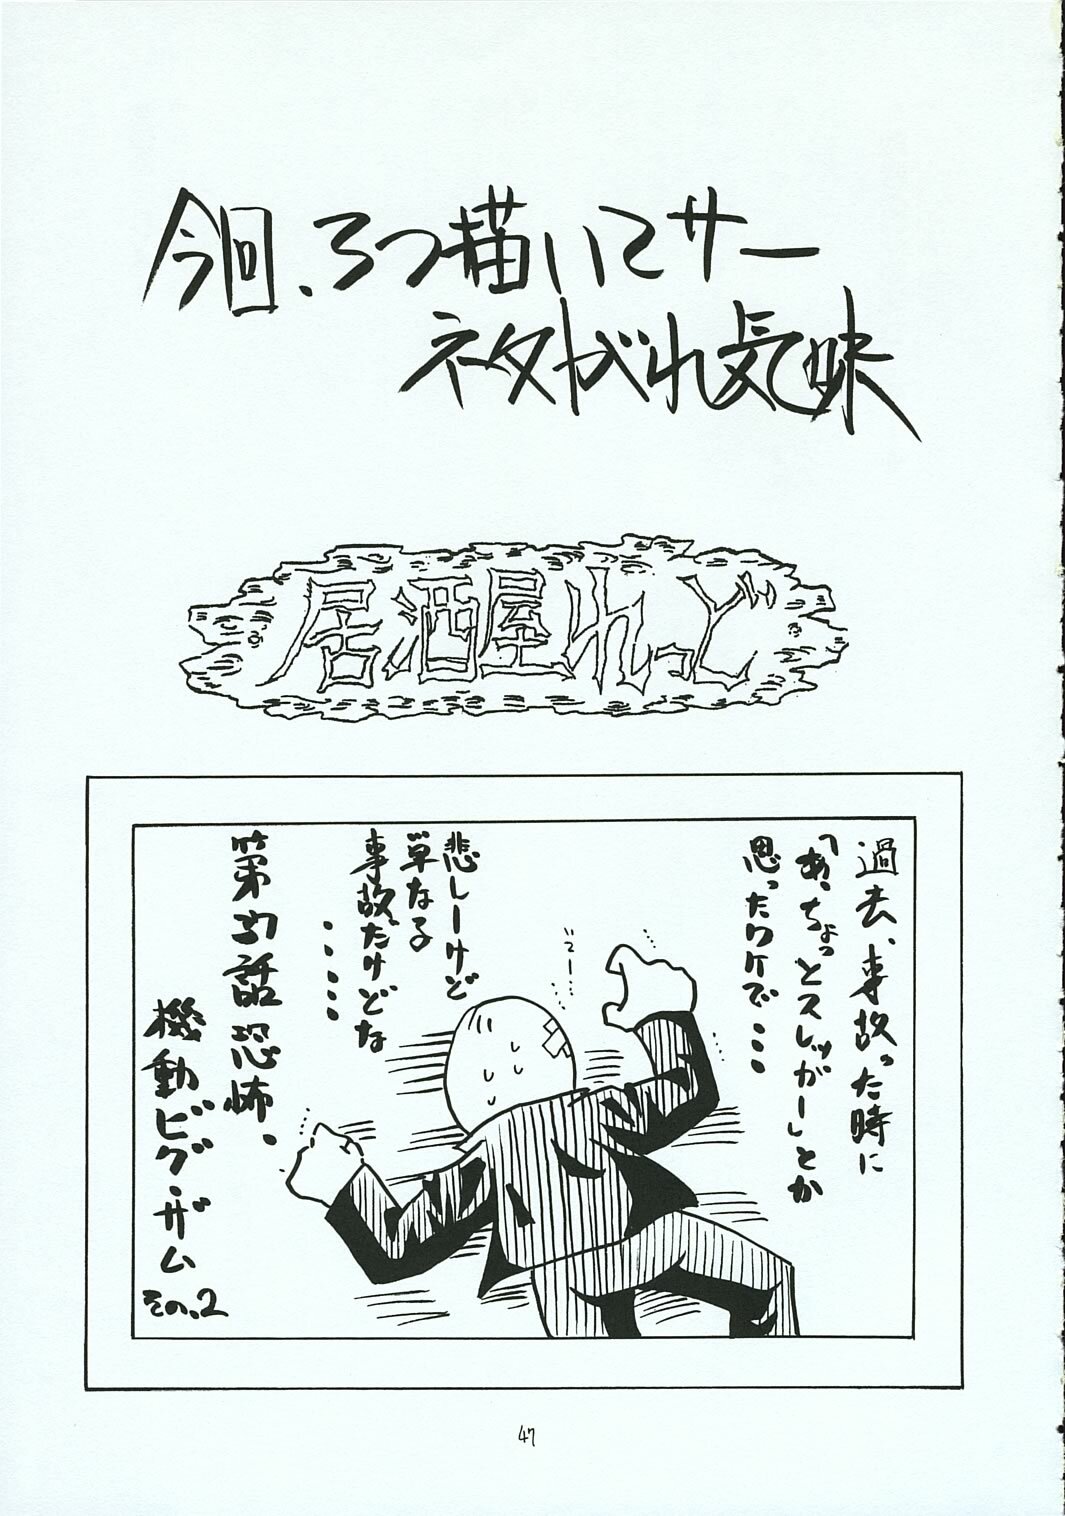 今回、3つ描いてサー
ネタがれ気味
居酒屋れっど
過去、事故った時に
「あ、ちょっとスレッガー」とか
思ったワケで・・・
ごー
悲しーけど
単なる
事故だけどな
・・・・
第37話 恐怖、
機動ビグ・ザム
その、2
47